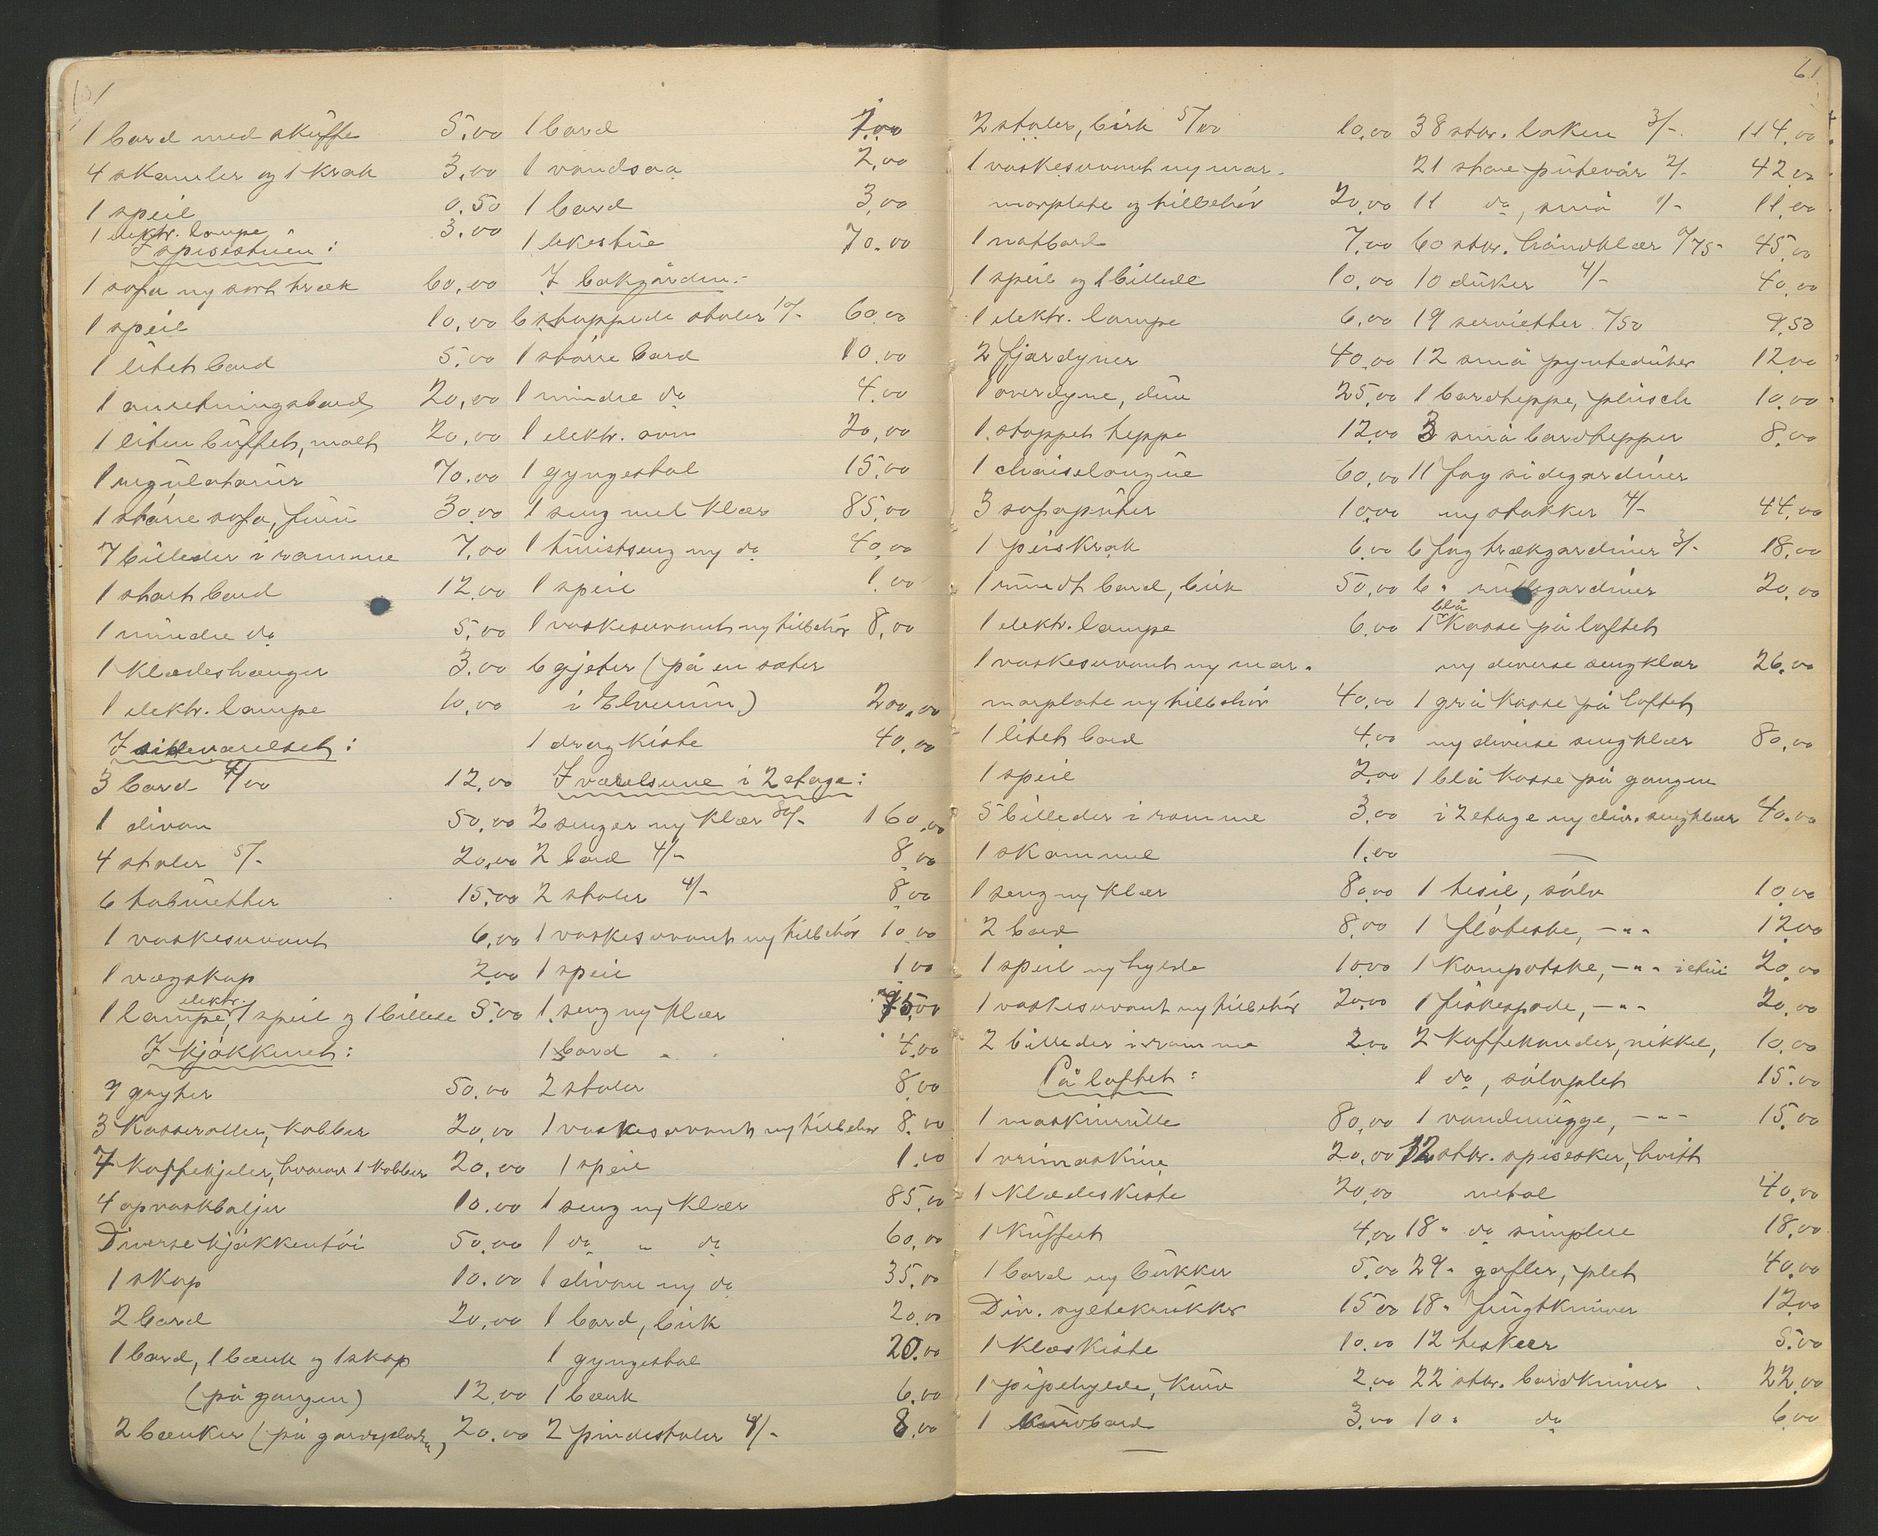 1 bord med skuffe 5.00
4 skamler og 1 krak 3.00
1 speil 0.50
1 elektr. lampe 3.00
I spisestuen:
1 sofa m/ sort træk 60.00
1 speil 10.00
1 litet bord 5.00
1 anretningsbord 20.00
1 liten buffet, malt 20.00
1 regulatorur 70.00
1 större sofa, furu 30.00
7 billeder i ramme 7.00
1 stort bord 12.00
1 mindre do 5.00
1 klædeshænger 3.00
1 elektr. lampe 10.00
I sideværelset:
3 bord 4/00 12.00
1 divan 50.00
4 stoler 5/- 20.00
6 taburetter 15.00
1 vaskeservant 6.00
1 vægskap 2.00
elektr.
1 lampe, 1 speil og 1 billede 5.00
I kjökkenet:
9 gryter 50.00
3 kasseroller, kobber 20.00
7 kaffekjeler, hvorav 1 kobber 20.00
4 opvaskbaljer 10.00
Diverse kjökkentöi 50.00
1 skap 10.00
2 bord 20.00
1 bord, 1 bænk og 1 skap
(på gangen) 12.00
2 bænker (på gardsplads) 20.00
1 bord 7.00
1 vandsaa 2.00
1 bord 3.00
1 lekestue 70.00
I bakgården:
6 stoppede stoler 10/- 60.00
1 större bord 10.00
1 mindre do 4.00
1 elektr. ovn 20.00
1 gyngestol 15.00
1 seng med klær 85.00
1 turistseng m/ do 40.00
1 speil 1.00
1 vaskeservant m/ tilbehör 8.00
6 gjeter (på en sæter
i Elverum) 200.00
1 dragkiste 40.00
I værelsene i 2 etage:
2 senger m/ klær 80/- 160.00
2 bord 4/- 8.00
2 stoler 4/- 8.00
1 vaskeservant m/ tilbehör 10.00
1 speil 1.00
1 seng m/ klær 75.00
1 bord 4.00
2 stoler 8.00
1 vaskeservant m/ tilbehör 8.00
1 speil 1.00
1 seng m/ klær 85.00
1 do " do 60.00
1 divan m/ do 35.00
1 bord, birk 20.00
1 gyngestol 20.00
1 bænk 6.00
2 pindestoler 4/- 8.00
61
2 stoler, birk 5/00 10.00
1 vaskeservant m/ mar-
morplate og tilbehör 20.00
1 natbord 7.00
1 speil og 1 billede 10.00
1 elektr. lampe 6.00
2 fjærdyner 40.00
1 overdyne, dun 25.00
1 stoppet teppe 12.00
1 chaiselongue 60.00
3 sofaputer 10.00
1 peiskrak 6.00
1 rundt bord, birk 50.00
1 elektr. lampe 6.00
1 vaskeservant m/ mar-
morplate m/ tilbehör 40.00
1 litet bord 4.00
1 speil 2.00
5 billeder i ramme 3.00
1 skammel 1.00
1 seng m/ klær 80.00
2 bord 8.00
1 speil m/ hylde 10.00
1 vaskeservant m/ tilbehör 20.00
2 billeder i ramme 2.00
På loftet:
1 maskinrulle 80.00
1 vrimaskine 20.00
1 klædeskiste 20.00
1 kuffert 4.00
1 bord m/ bukker 5.00
Div. syltekrukker 15.00
1 klæskiste 10.00
1 pipehylde, kurv 2.00
1 kurvbord 3.00
38 stkr. laken 3/- 114.00
21 store putevår 2/- 42.00
11 do, små 1/- 11.00
60 stkr. håndklær 0/75 45.00
10 duker 4/- 40.00
19 servietter 0/50 9.50
12 små pynteduker 12.00
1 bordteppe, plusch 10.00
3 små bordtepper 8.00
11 fag sidegardiner
m/ stokker 4/- 44.00
6 fag trækgardiner 3/- 18.00
6 " rullegardiner 20.00
blå
1 kasse på loftet
m/ diverse sengklær 26.00
1 grå kasse på loftet
m/ diverse sengklær 80.00
1 blå kasse på gangen
i 2 etage m/ div. sengklær 40.00
1 tesil, sölv 10.00
1 flöteske, -"- 12.00
1 kompotske, -"- i etui 20.00
1 fiskespade, -"- 20.00
2 kaffekander, nikkel, 10.00
1 do, sölvplet 15.00
1 vandmugge, -"- 15.00
12 stkr. spiseskeer, hvitt
metal 40.00
18 " do simplere 18.00
29 " gafler, plet 40.00
18 " frugtkniver 12.00
12 teskeer 5.00
22 stkr. bordkniver 22.00
10 " do 6.00